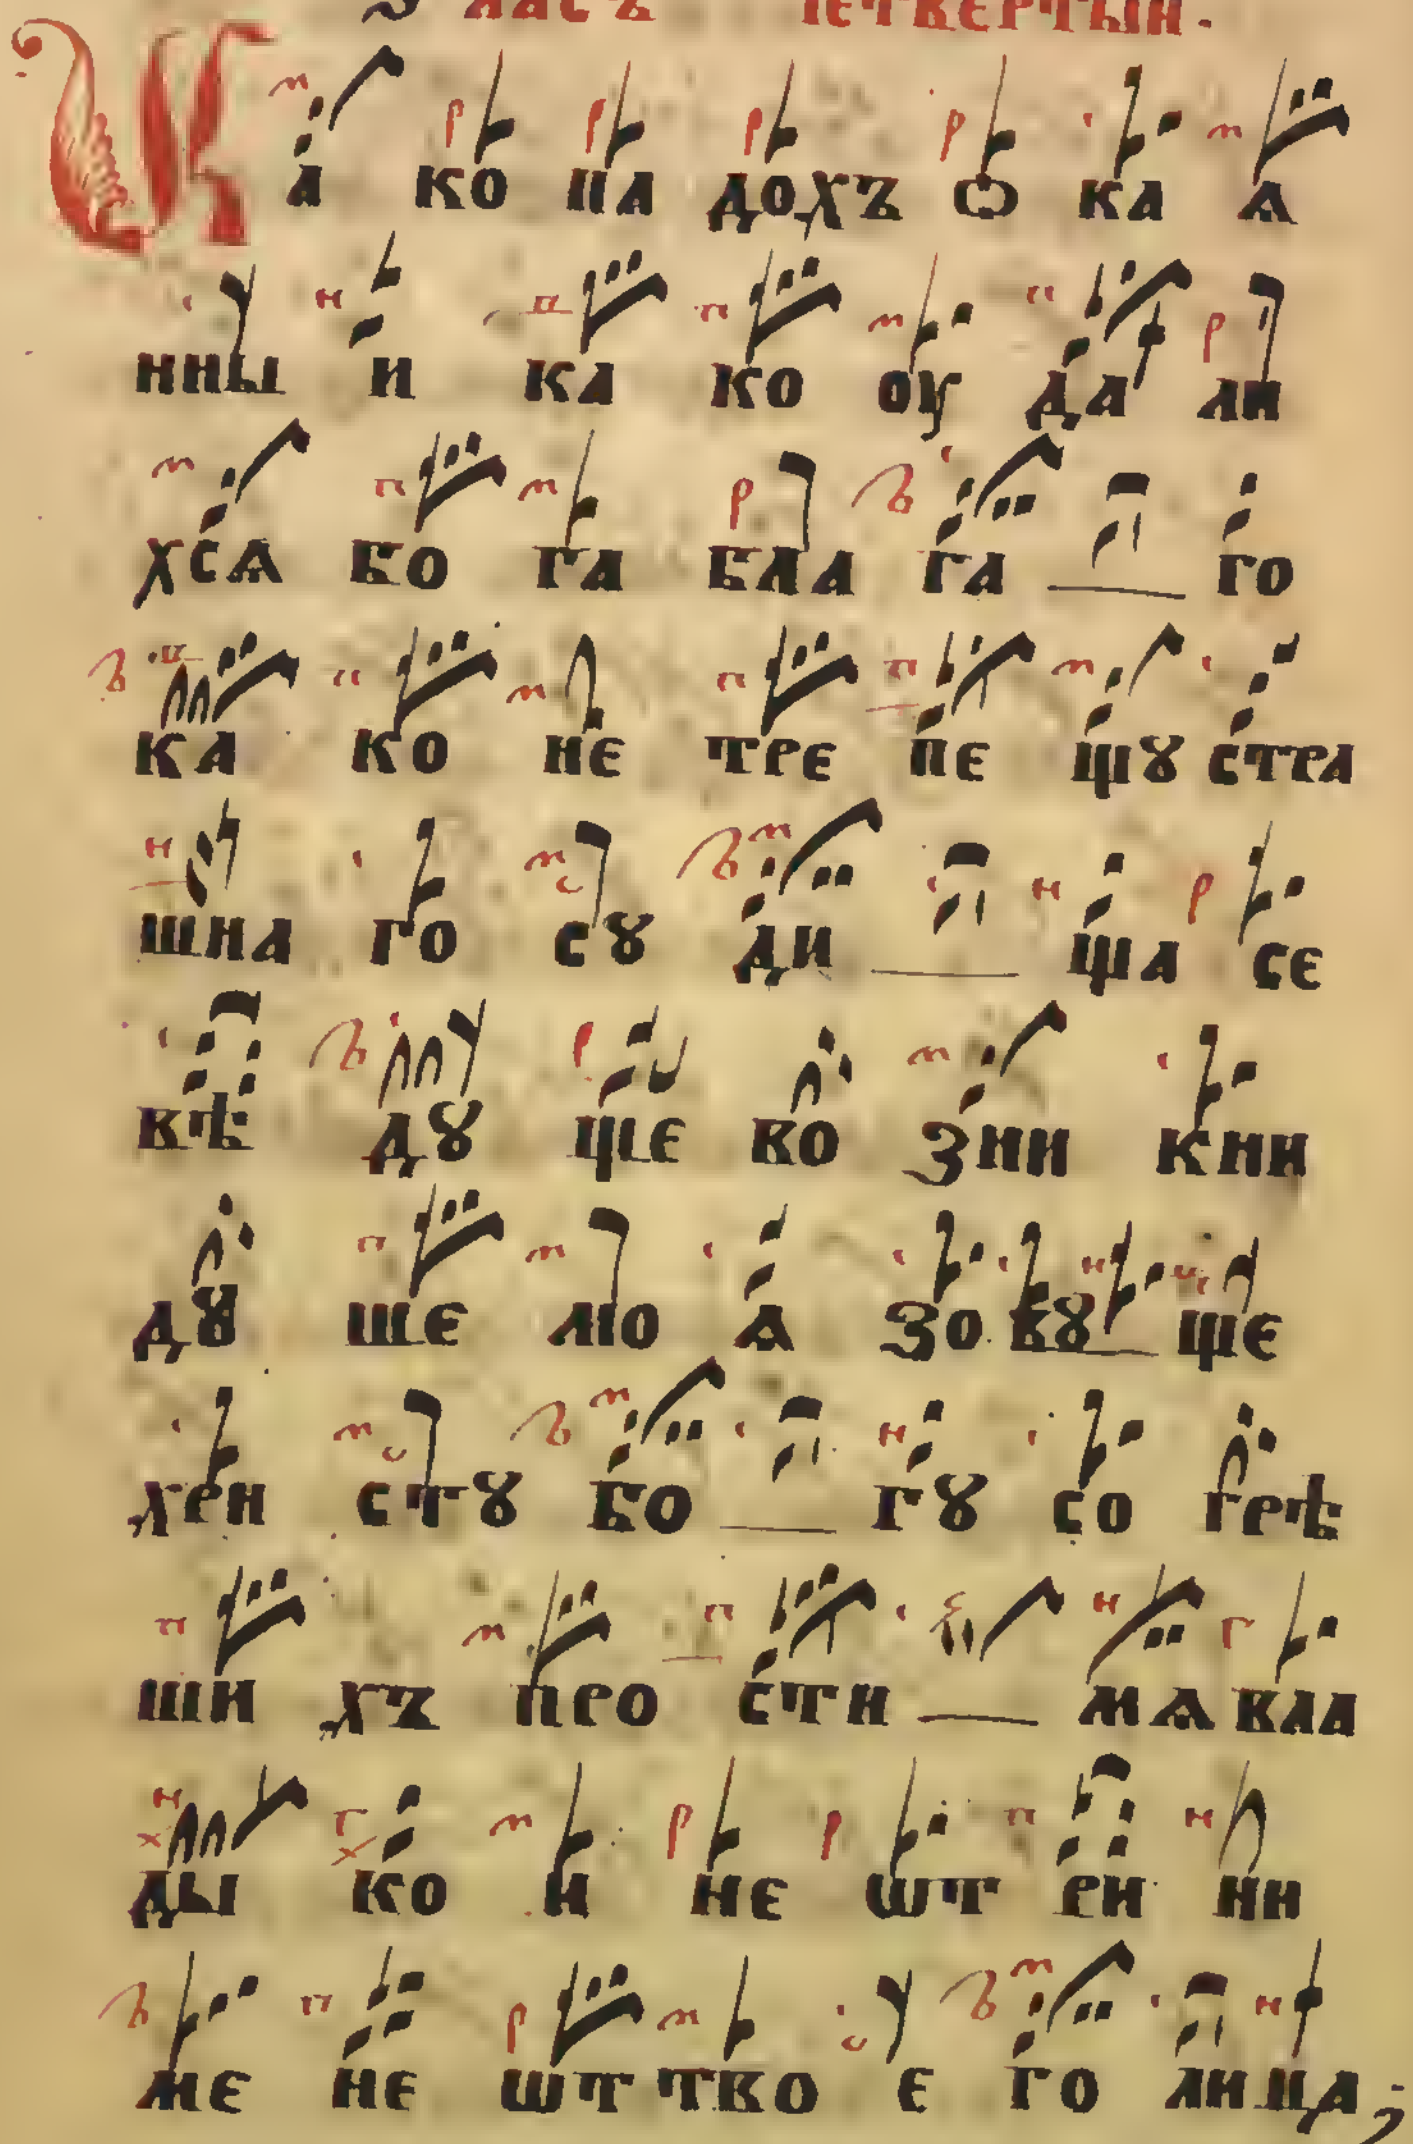 гласъ четвертыи.
Ка ко па дохъ ѻ ка ѧ
нны и ка ко оу да ли
хсѧ бо га бла га го
ка ко не тре пе щꙋ стра
шна го сꙋ ди ща се
вѣ дꙋ ще во зни кни
дꙋ ше мо ѧ зо вꙋ ще
хри стꙋ бо гꙋ со грѣ
ши хъ про сти мѧ вла
ды ко и не ѿ ри ни
ме не ѿ тво е го лица;